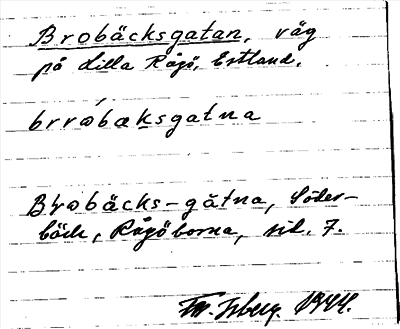 Brobäcksgatan, väg
på Lilla Rågö, Estland.
brrabaksgatna
Brobäcks-gåtna, Söder-
bäck, Rågöborna, sid. 7.
Isberg 1944.